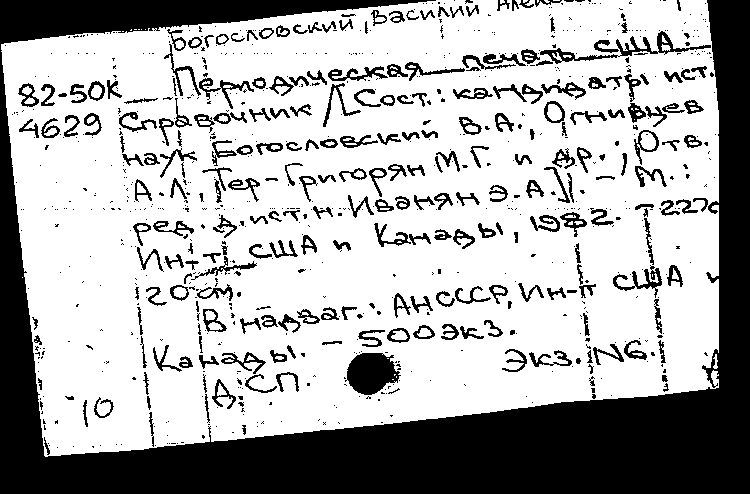 Богословский, Василий Алекс
82-50К Периодическая печать США:
4629 Справочник /[Сост.: кандидаты ист.
наук Богословский В.А., Огнивцев
А.Л., Тер-Григорян М.Г. и др.; Отв.
ред. д.ист.н. Иванян Э.А.]. – М.:
Ин-т США и Канады, 1982. – 227с
20 см.
В надзаг.: АН СССР, Ин-т США и
Канады. – 500 экз.
Экз. N6.
ДСП.
10